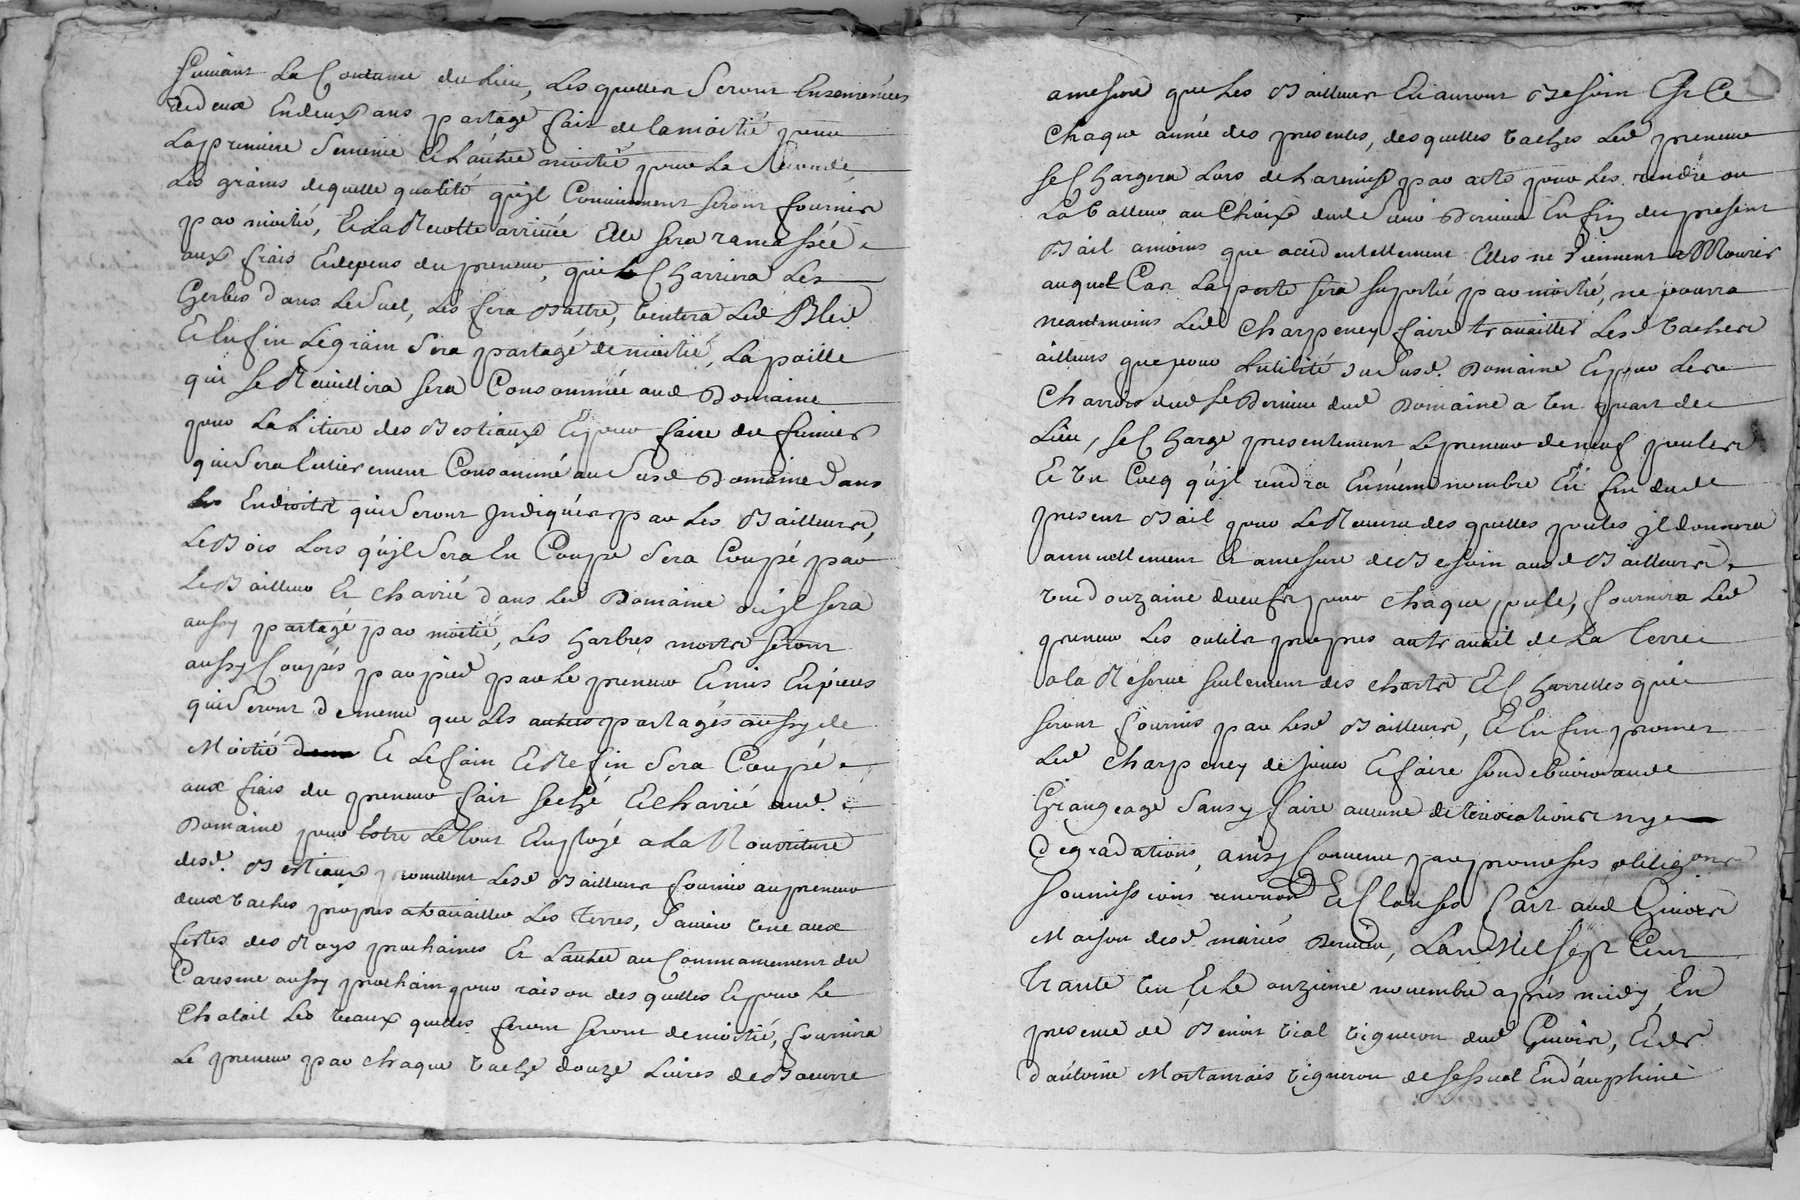 suivant La Coutume du Lieu, Les quelles seront Ensemencées
de deux En deux ans partage fait de la moitié pour
La premiere semence Et Lautre moitié pour La seconde,
Les grains de quelle qualité quijl Conviennent seront fournis
par moitié, Et La Recolte arrivée Elle sera ramassée
aux frais Et depens du preneur, qui Charriera Les
Gerbes dans Le suel, Les fera Battre, Ventera Led Bled
Et En fin Le grain sera partagé de moitié, La paille
qui se Receuillira sera Consommée aud Domaine
pour La Liture des Bestiaux Et pour faire du fumier
qui sera Entierement Consommé au susd Domaine dans
Les Endroits qui seront jndiqués par Les Bailleurs,
Le Bois Lors qu'jl sera En Coupe sera Coupé par
Le Bailleur Et charrié dans Led Domaine ou jl sera
aussy partagé par moitié, Les harbres morts seront
aussy Coupés par pied par Le preneur Et mis En pieces
qui seront de meme que Les autres partagés aussy de
Moitié Et Le foin Et Refoin sera Coupé
aux frais du preneur fait seché Et charrié aud
Domaine pour Estre Le tout Employé a La Nourriture
desd. Bestiaux promettent Lesd Bailleurs fournir au preneur
deux vaches propres a travailler Les Terres, scavoir une aux
festes des Roys prochaines Et Lautre au Commancement du
Caresme aussy prochain pour raison des quelles Et pour Le
Chatail Les veaux quelles feront seront de moitié, fournira
Le preneur par chaque vache douze Livres de Beurre
a mesure que Les Bailleurs En auront Besoin Et Ce
Chaque année des presentes, des quelles vaches Led preneur
se Chargera Lors de La remise par acte pour Les rendre ou
La valleur au Choix dud sieur Bernieu En fin du present
Bail a moins que accidentellement Elles ne viennent a Mourir
auquel Cas La perte sera suportée par moitié, ne pourra
neantmoins Led Charpeney faire travailler Lesd vaches
ailleurs que pour Lutilité du susd. Domaine Et pour Les
Charrois dud sr Bernieu dud Domaine a un quart de
Lieu, se Charge presentement Le preneur de neuf poules
Et un Cocq qu'jl rendra En meme nombre En fin dud
present Bail pour Le Revenu des quelles poules jl donnera
annuellement Et a mesure de Besoin aud Bailleurs
une douzaine d'oeufs pour chaque poule, fournira Led
preneur Les outils propres au travail de La Terre
a la Reserve seulement des chars Et Charrettes qui
seront fournis par Lesd Bailleurs, Et En fin promet
Led Charpeney de jouir Et faire son devoir aud
Grangeage sans y faire aucune deteriorations ny
degradations, ainsy Convenu par promesses, obligons
soumissions renonons Et Clauses fait aud Givors
Maison desd. mariés Bernieu, L'an Mil sept Cent
Trante un Et Le onzieme novembre après midy En
presence de Benoit Vial vigneron dud Givors, Et de
d'antoine Mortamais vigneron de sessuel En dauphiné